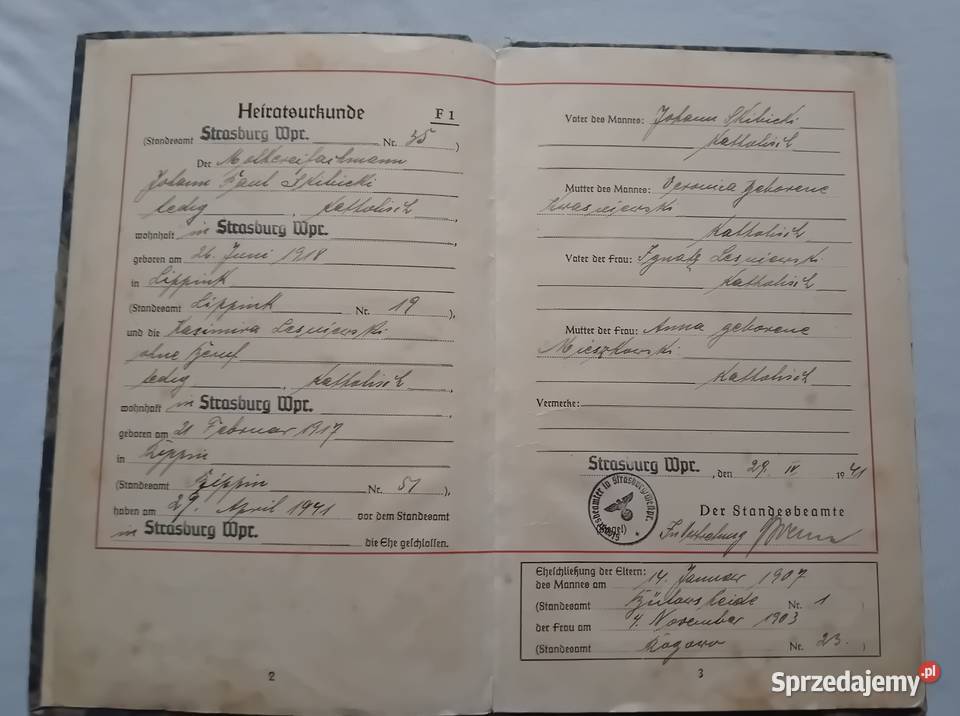 Heiratsurkunde F 1
(Standesamt Strasburg Wpr. Nr. 35)
Der Molkereifachmann
Johann Paul Skibicki
ledig, katholisch,
wohnhaft in Strasburg Wpr.,
geboren am 26. Juni 1918
in Lippink
(Standesamt Lippink Nr. 19),
und die Kasimira Lesniewski
ohne Beruf
ledig, katholisch,
wohnhaft in Strasburg Wpr.,
geboren am 21 Februar 1917
in
(Standesamt Nr. 51),
haben am 29. April 1941 vor dem Standesamt
in Strasburg Wpr. die Ehe geschlossen.
2
Vater des Mannes: Johann Skibicki
katholisch
Mutter des Mannes: Veronica geborene
Kwasniewski
katholisch
Vater der Frau: Ignatz Lesniewski
katholisch
Mutter der Frau: Anna geborene
Mieszkowski
katholisch
Vermerke:
Strasburg Wpr., den 29. IV 1941
(Siegel)
Der Standesbeamte
In Vertretung
Eheschließung der Eltern:
des Mannes am 14. Januar 1907
(Standesamt Bülowsheide Nr. 1)
der Frau am 4. November 1903
(Standesamt Rogowo Nr. 23.)
3
Sprzedajemy.pl